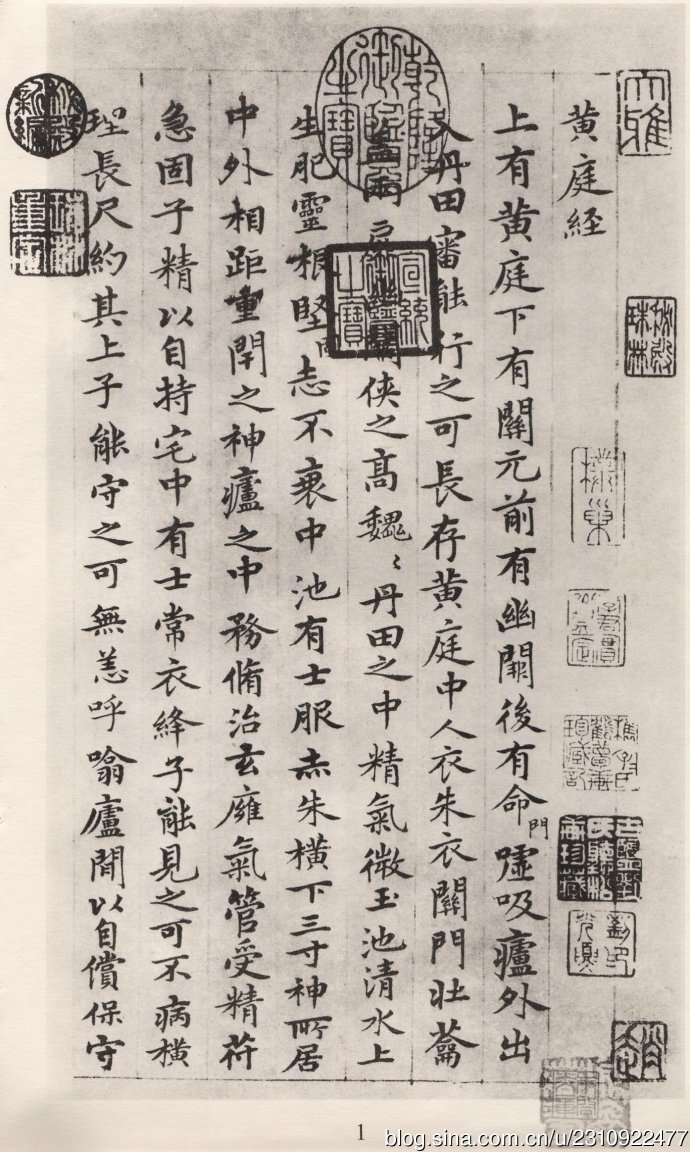 大雅
黄庭経
上有黄庭下有關元前有幽闕後有命門嘘吸廬外出
入丹田審能行之可長存黄庭中人衣朱衣關門壯蘥
蓋兩扉幽闕俠之高魏〻丹田之中精氣微玉池清水上
生肥靈根堅固志不衰中池有士服赤朱横下三寸神所居
中外相距重閇之神廬之中務脩治玄廱氣管受精符
急固子精以自持宅中有士常衣絳子能見之可不病横
理長尺約其上子能守之可無恙呼噏廬間以自償保守
乾隆御覽之寶
宣統御覽之寶
1
blog.sina.com.cn/u/2310922477